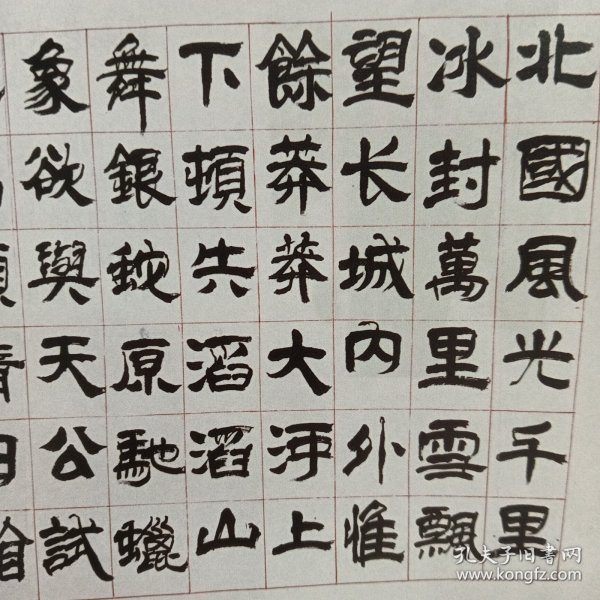 北國風光千里
冰封萬里雪飄
望长城内外惟
餘莽莽大河上
下頓失滔滔山
舞銀蛇原馳蠟
象欲與天公試
孔夫子旧书网
www.kongfz.com